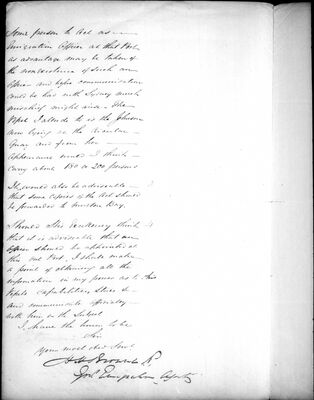 Some person to act as
Emigration Officer at that Port
as advantage may be taken of
the nonexistence of such an
Officer and before communication
could be had with Sydney much
mischief might arise. The
Vessel I allude to is the
now lying in the
Quay and from her
appearance would I think
carry about 180 or 200 persons
It would also be advisable
that some copies of the Act should
be forwarded to Moreton Bay.
Should His Excellency think
that it is advisable that an
Officer should be appointed at
this Port, I should make
a point of obtaining all the
information in my power as to this
Vessels capabilities, Stores &c
and communicate
with him on the Subject
I have the honor to be
Sir
Your most Obt Servt
H H Browne